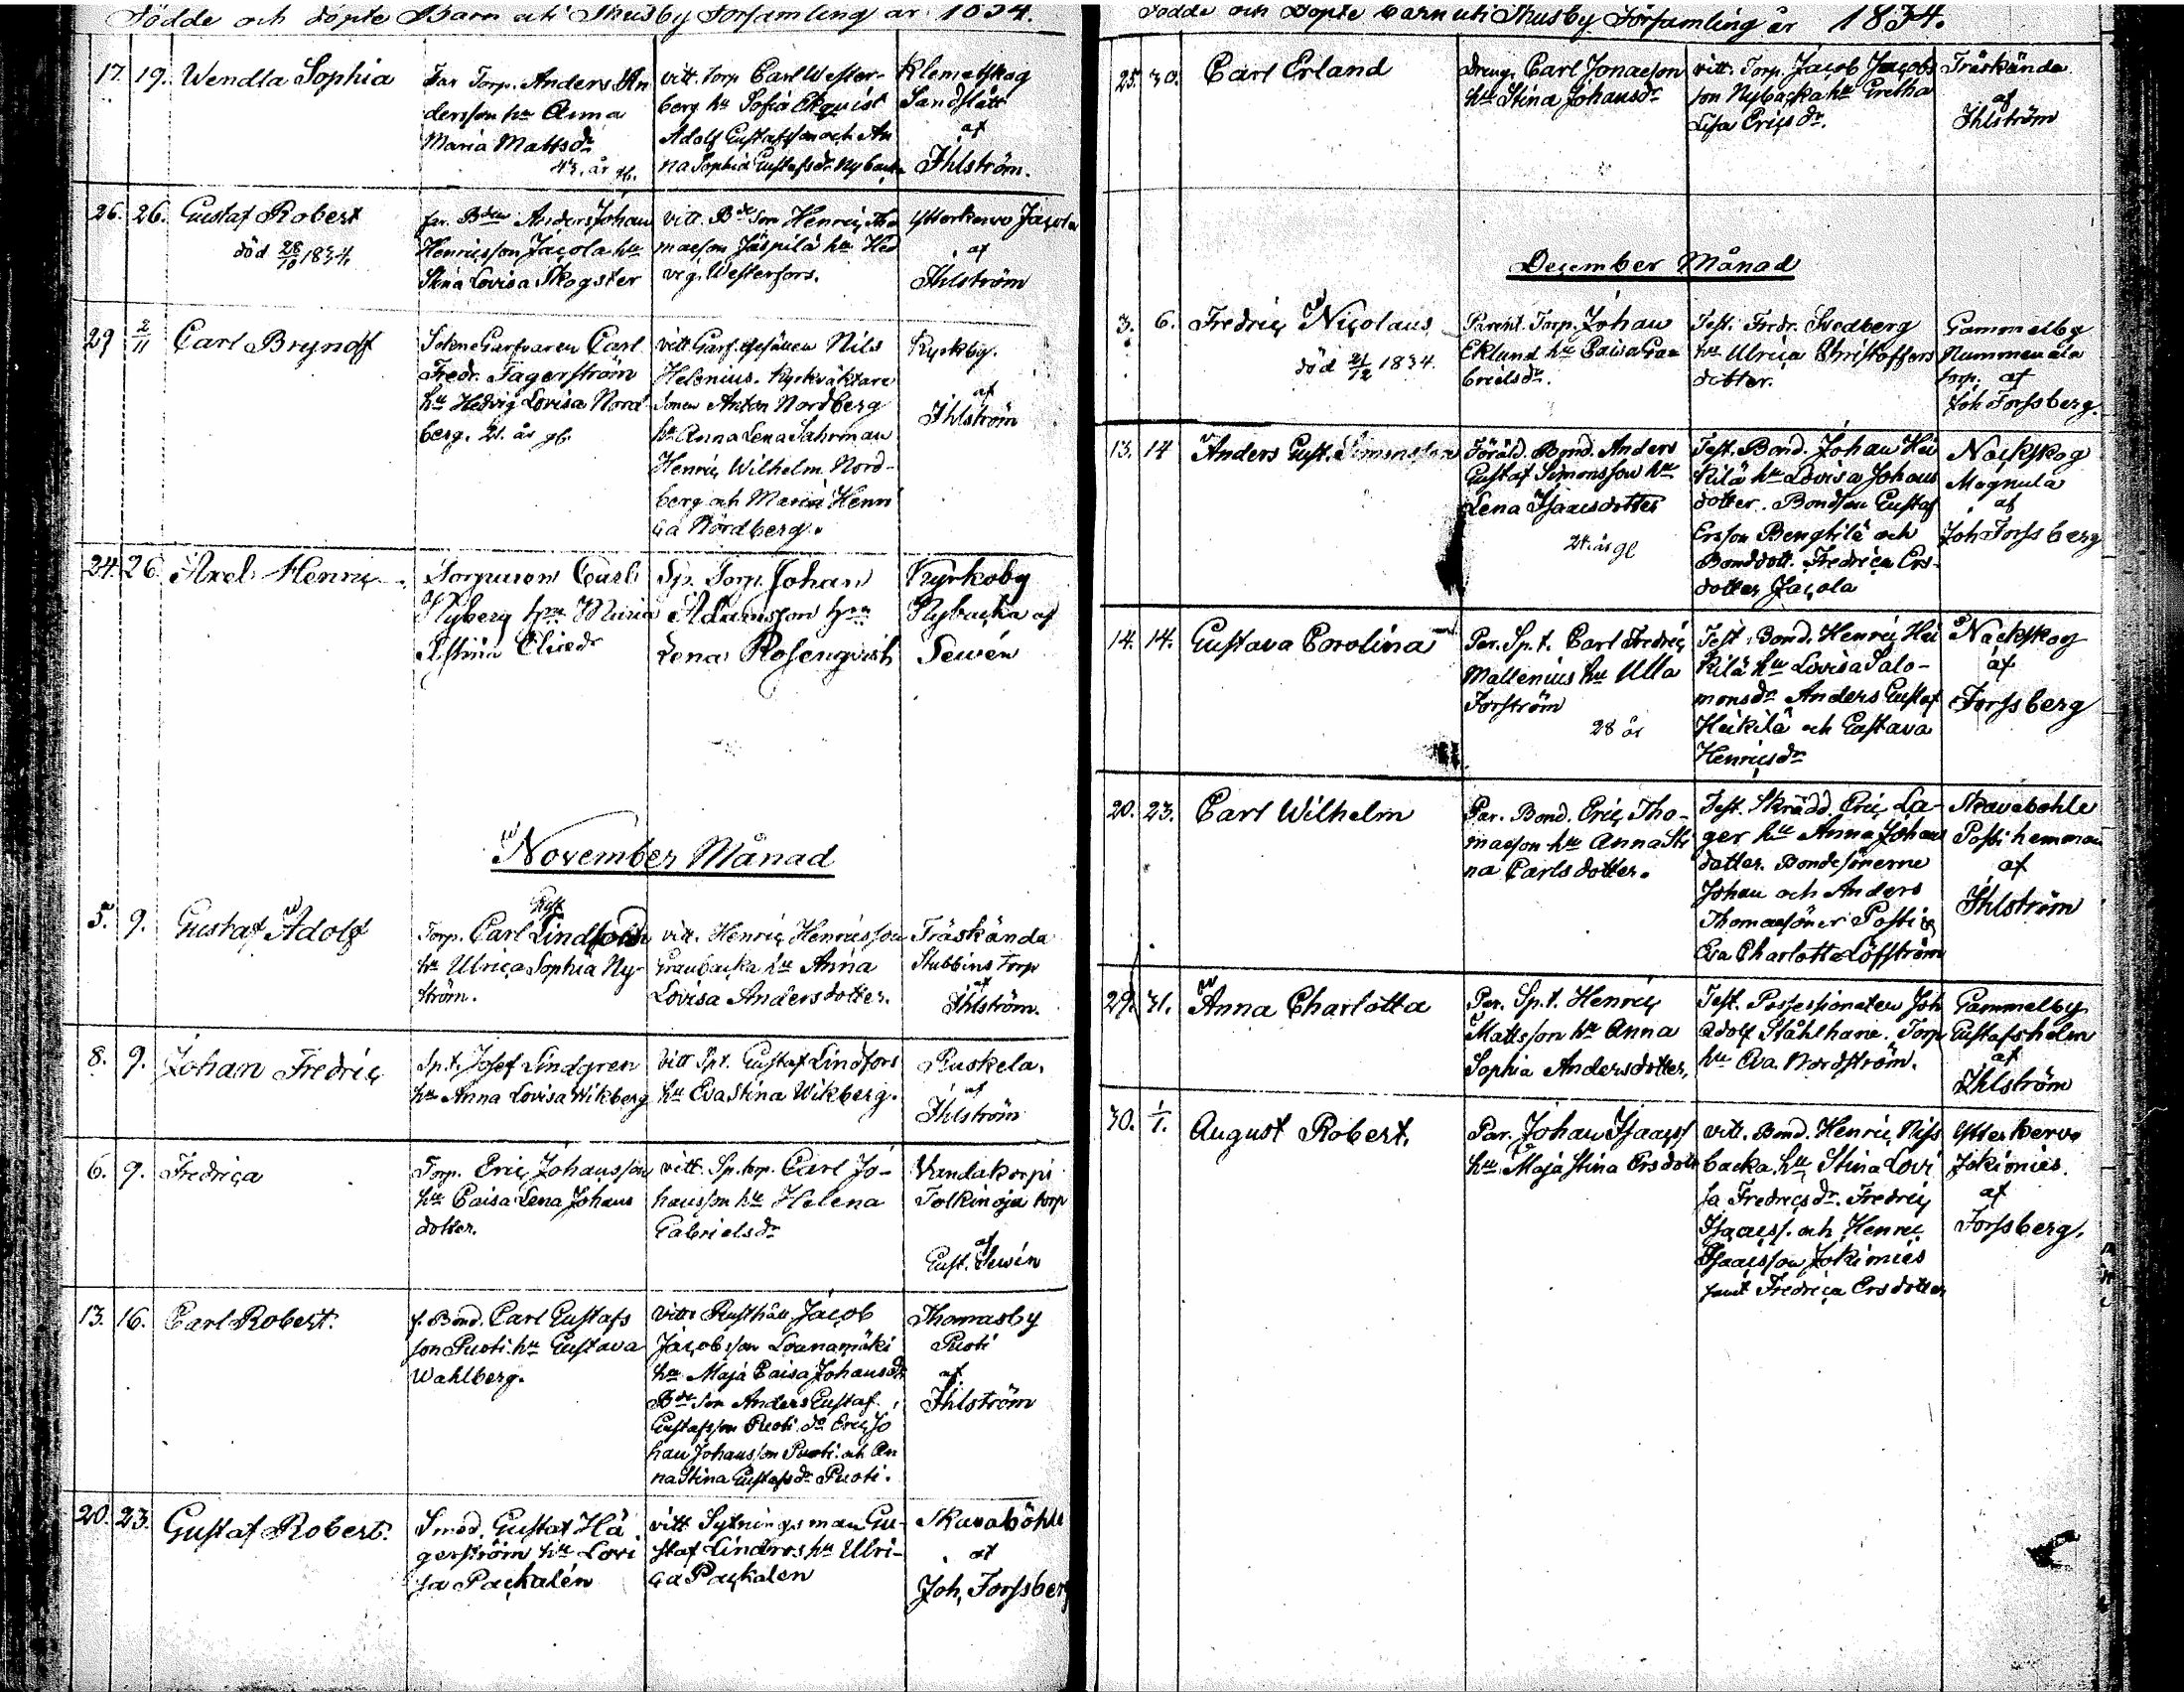 Födde och döpte Barn uti Thusby Församling år 1834.
17. 19. Wendla Sophia
Far Torp. Anders An
dersson hu Anna
Maria Mattsdr
43. år gl.
vitt. Torp Carl Wester-
berg hu Sofia Ekqvist
Adolf Gustafsson och An
na Sophia Gustafsdr Nybacka
Klemetskog
Sandslätt
af
Ihlström.
26. 26. Gustaf Robert
död 28/10 1834.
far. Bden Anders Johan
Henricsson Jacola hu
Stina Lovisa Skogster
vitt. Bdeson Henric Tho
masson Jäspilä hu Hed
vig. Westerfors.
Ytterkervo Jacola
af
Ihlström
29 2/11 Carl Bryndolf
Sokne Garfvaren Carl
Fredr. Fagerström
hu Hedvig Lovisa Nord
berg. 21. år gl.
vitt Garf. gesällen Nils
Helenius. Kyrkväktare
sonen Anton Nordberg
hu Anna Lena Sahrman
Henric Wilhelm Nord-
berg och Maria Henri
ca Nordberg.
Kyrkby.
af
Ihlström
24. 26 Axel Henric
Torparen Carl
Nyberg hnu Maria
Stina Ericsdr
Sp. Torp. Johan
Adamsson hnu
Lena Rosenqvist
Kyrkoby
Nybacka af
Sewén
November Månad
5. 9. Gustaf Adolf
Torp. Carl Lindfors
hu Ulrica Sophia Ny-
ström.
vitt. Henric Henricsson
Granbacka hu Anna
Lovisa Andersdotter.
Träskända
Stubbins torp
af
Ihlström.
8. 9. Johan Fredric
Sp.t. Josef Lindgren
hu Anna Lovisa Wikberg
vitt Spt. Gustaf Lindfors
hu Eva Stina Wikberg.
Ruskela.
af
Ihlström
6. 9. Fredrica
Torp. Eric Johansson
hu Caisa Lena Johans
dotter.
vitt. Sp. torp. Carl Jo-
hansson hu Helena
Gabrielsdr
Vandakorpi
Tolkinoja torp
af
Gust. Sewén
13. 16. Carl Robert.
f. Bond. Carl Gustafs
son Puoti hu Gustava
Wahlberg.
vitt. Rusthåll Jacob
Jacobsson Lounamäki
hu Maja Caisa Johansdr
Bdeson Anders Gustaf
Gustafsson Puoti do Eric Jo
han Johansson Puoti och An
na Stina Gustafsdr Puoti.
Thomasby
Puoti
af
Ihlström
20. 23. Gustaf Robert.
Smed. Gustaf Hä
gerström hu Lovi
sa Packalén
vitt Sytningsman Gu-
staf Lindros hu Ulri-
ca Packalen
Skavaböhle
af
Joh. Forssberg
Födde och Döpte barn uti Thusby Församling år 1834.
25. 30. Carl Erland
Dreng. Carl Jonaesson
hu Stina Johansdr
vitt. Torp. Jacob Jacobs
son Nybacka hu Gretha
Lisa Ericsdr.
Träskända
af
Ihlström
December Månad
3. 6. Fredric Nicolaus
död 21/12 1834.
Parent. Torp. Johan
Eklund hu Caisa Ga
brielsdr.
Test. Fredr. Svedberg
hu Ulrica Christoffers
dotter.
Gammelby
Nummenala
torp. af
Joh Forssberg.
13. 14 Anders Gust. Simonsson
Föräld. Bond. Anders
Gustaf Simonsson hu
Lena Isaacsdotter
24. år gl
Test. Bond. Johan Hei
kilä hu Lovisa Johans
dotter. Bondson Gustaf
Ersson Bengtilä och
Bonddott. Fredrica Ers-
dotter Jacola
Nackskog
Magnula
af
Joh Forssberg
14. 14. Gustava Carolina
Par. Sp.t. Carl Fredric
Mallenius hu Ulla
Forström
28 år
Test. Bond. Henric Hei
kilä hu Lovisa Salo-
monsdr Anders Gustaf
Heikilä och Gustava
Henricsdr
Nackskog
af
Forssberg
20. 23. Carl Wilhelm
Par. Bond. Eric Tho-
masson hu Anna Sti
na Carlsdotter.
Test. Skrädd. Eric La-
ger hu Anna Johans
dotter. Bondesönerne
Johan och Anders
Thomassöner Posti o
Eva Charlotta Löfström
Skavabohle
Posti hemman
af
Ihlström
29. 31. Anna Charlotta
Par. Sp.t. Henric
Mattsson hu Anna
Sophia Andersdotter.
Test. Possessionaten Joh
Adolf Ståhlhane. Torp
hu Eva Nordström.
Gammelby
Gustafsholm
af
Ihlström
30. 1/1. August Robert.
Par. Johan Isaacss
hu Maja Stina Ersdotter
vitt. Bond. Henric Niss
backa hu Stina Lovi
sa Fredricsdr. Fredric
Isaacss. och Henric
Isaacsson Jokimies
samt Fredrica Ersdotter
Ytterkervo
Jokimies.
af
Forssberg.